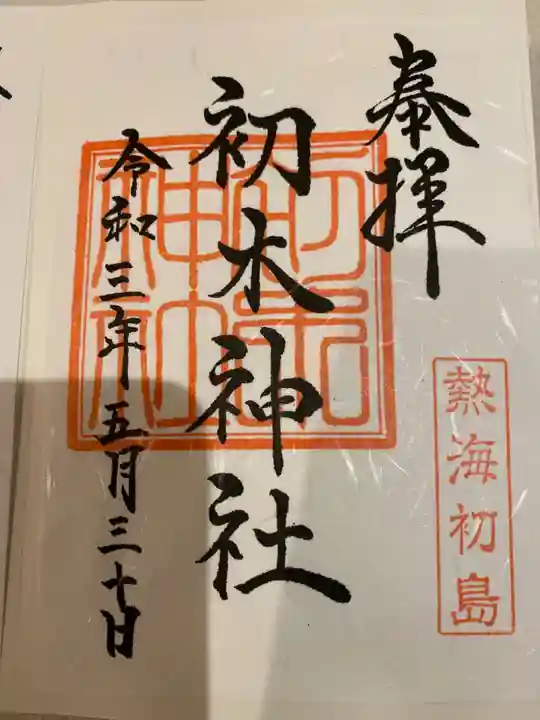 奉拝
熱海初島
初木神社
初木神社
令和三年五月三十日